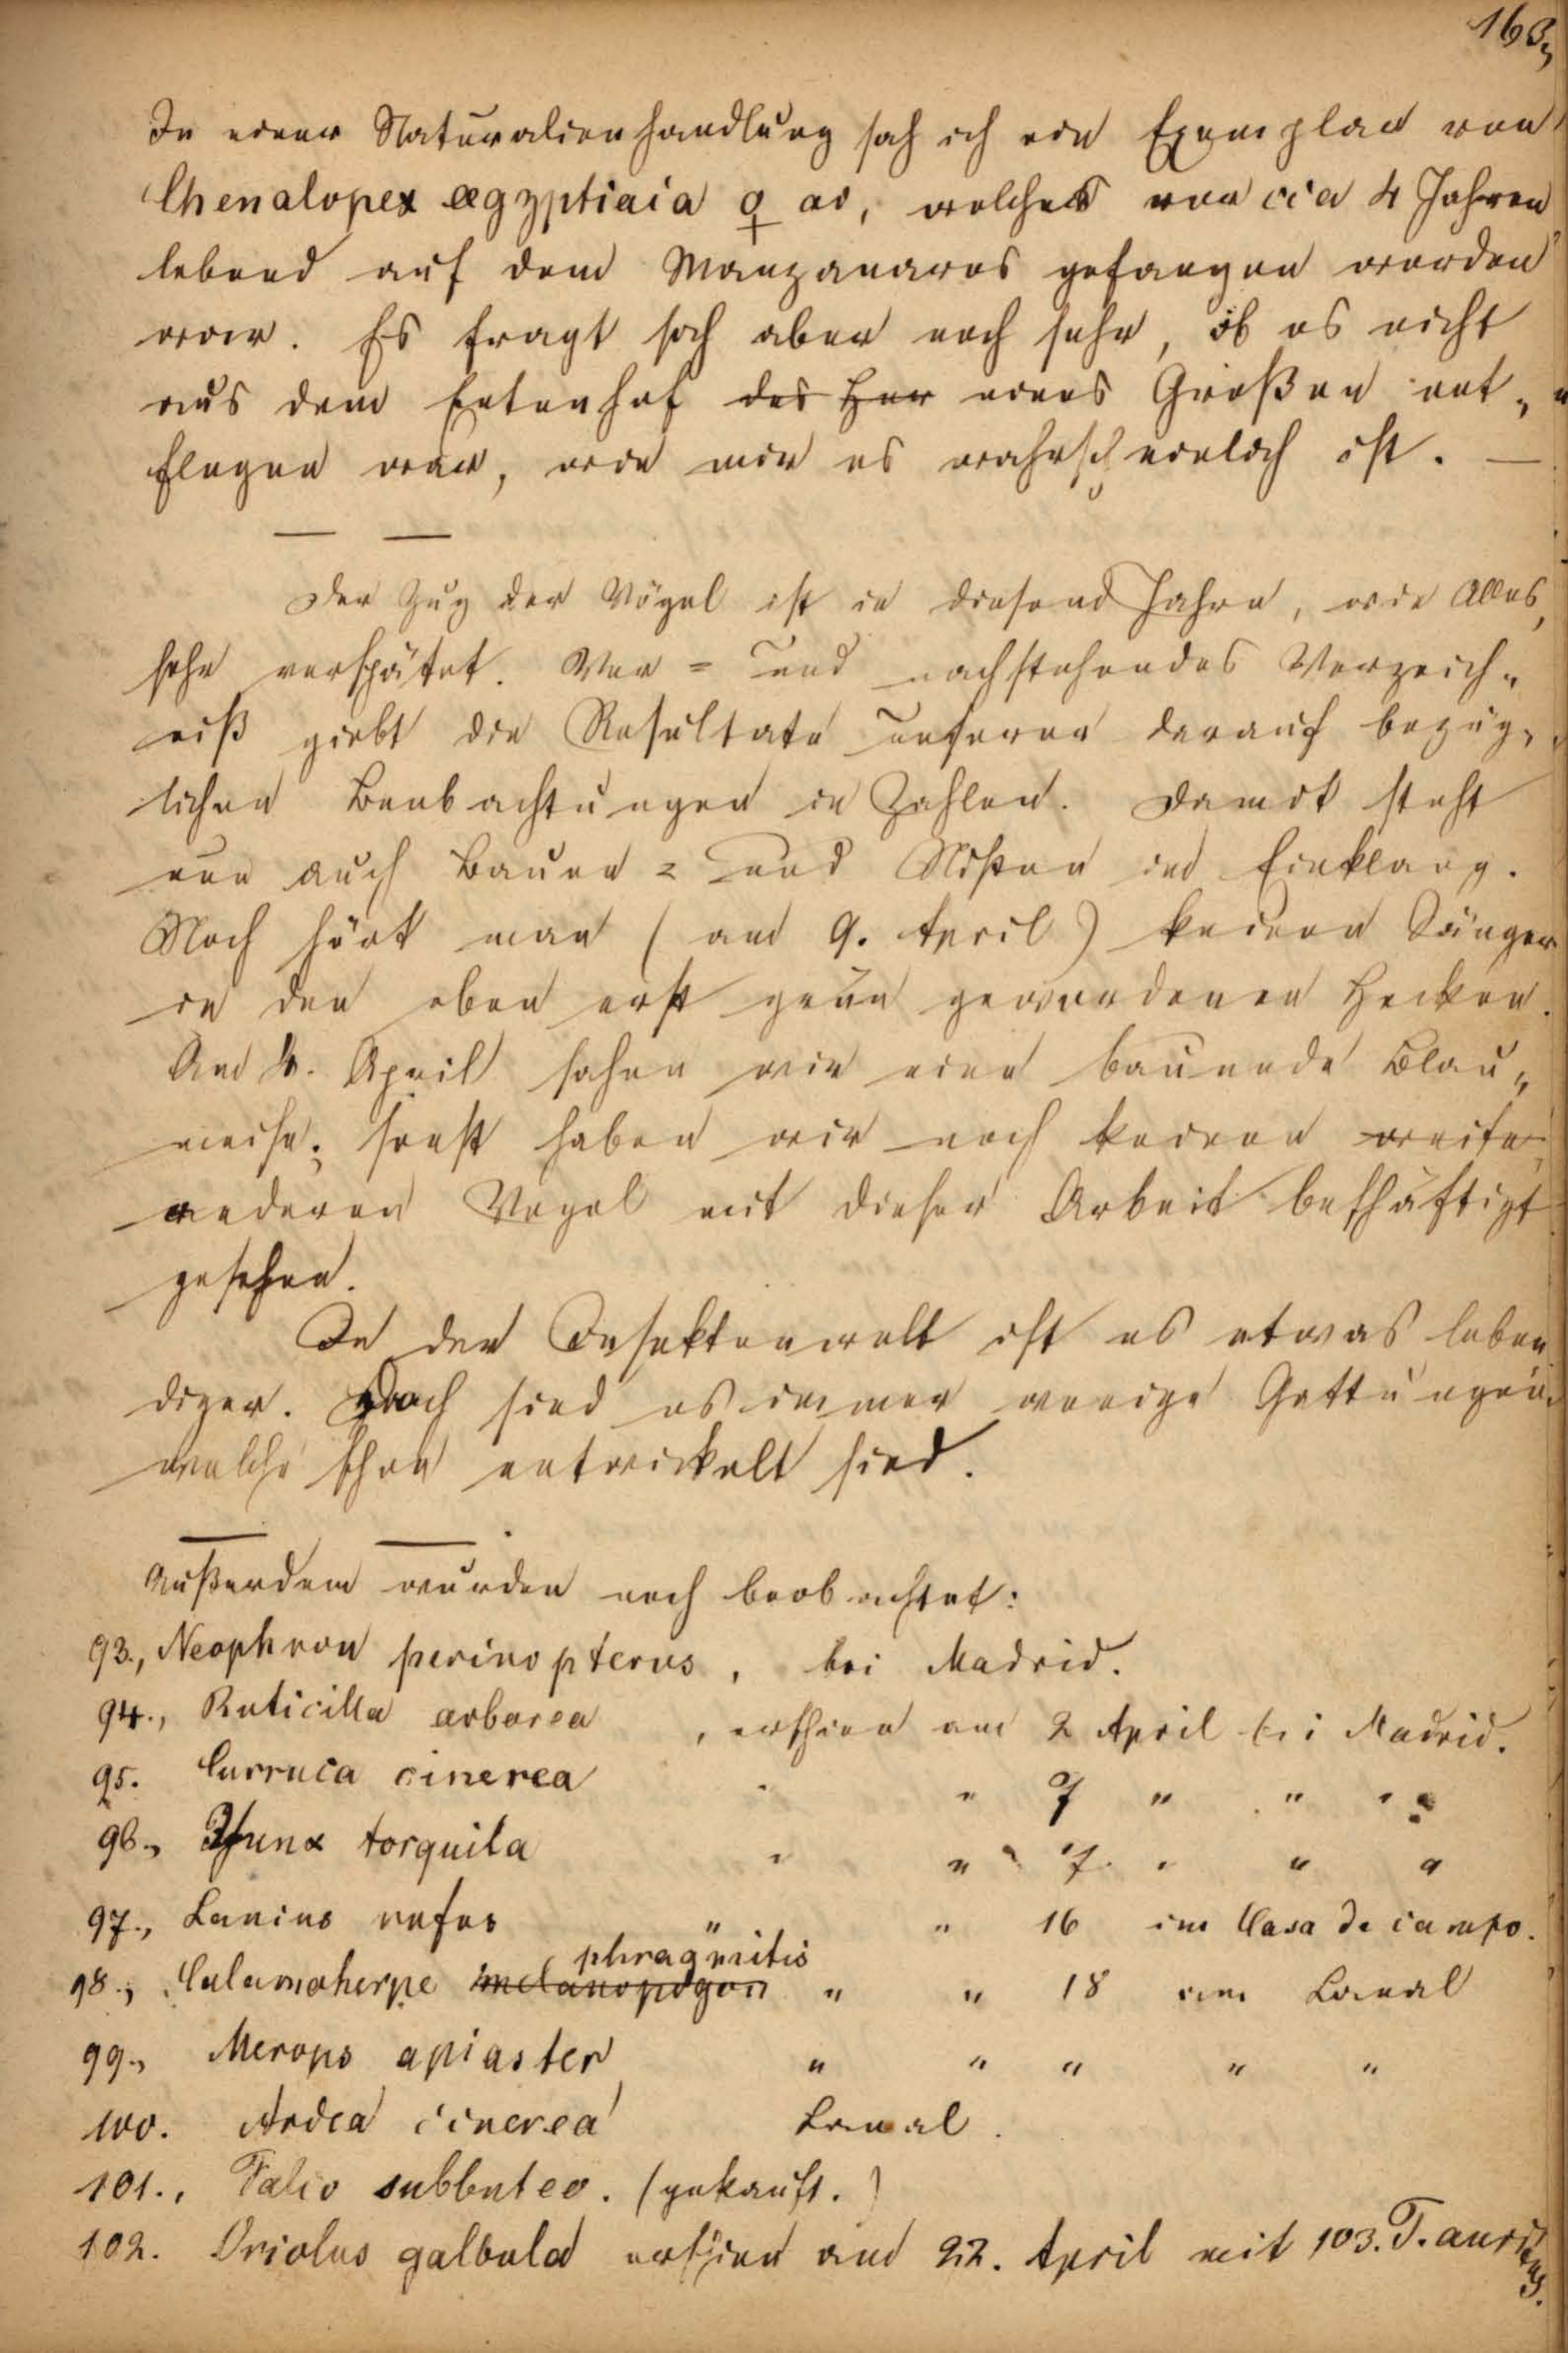 163,
In einer Naturalienhandlung sah ich ein Exemplar von
Chenalopex ægyptiaca ♀ ad, welches vor cca 4 Jahren
lebend auf dem Manzanares gefangen worden
war. Es fragt sich aber noch sehr, ob es nicht
aus dem Entenhof des Her eines Großen ent„
flogen war, wie mir es wahrscheinlich ist. —
— —
Der Zug der Vögel ist in diesem Jahre, wie Alles,
sehr verspätet. Vor = und nachstehendes Verzeich„
niß giebt die Resultate unserer darauf bezüg„
lichen Beobachtungen in Zahlen. Damit steht
nun auch Bauen = und Nisten im Einklang.
Noch hört man (am 9. April) keinen Sänger
in den eben erst grün gewordenen Hecken.
Am 4. April sahen wir eine bauende Blau„
meise; sonst haben wir noch keinen weiter
anderen Vogel mit dieser Arbeit beschäftigt
gesehen.
In der Insektenwelt ist es etwas leben
diger. Doch sind es immer wenige Gattungen
welche schon entwickelt sind.
— —
Außerdem wurden noch beobachtet:
93., Neophron perinopterus, bei Madrid.
94., Ruticilla arborea , erschien am 2 April bei Madrid.
95. Curruca cinerea " " 7 " " "
96., Yunx torquila " " 7. " " "
97., Lanius rufus " " 16 im Casa de campo.
phragmitis
98., Calamoherpe melanopogon " " 18 am Canal
99., Merops apiaster " " " " "
100. Ardea cinerea Canal.
101., Falco subbuteo. (gekauft.)
102. Oriolus galbula erschien am 22. April mit 103. T. auritus.